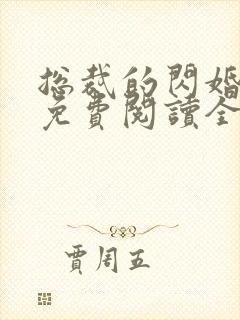 总裁的閃婚
免費閱讀全
賈周五